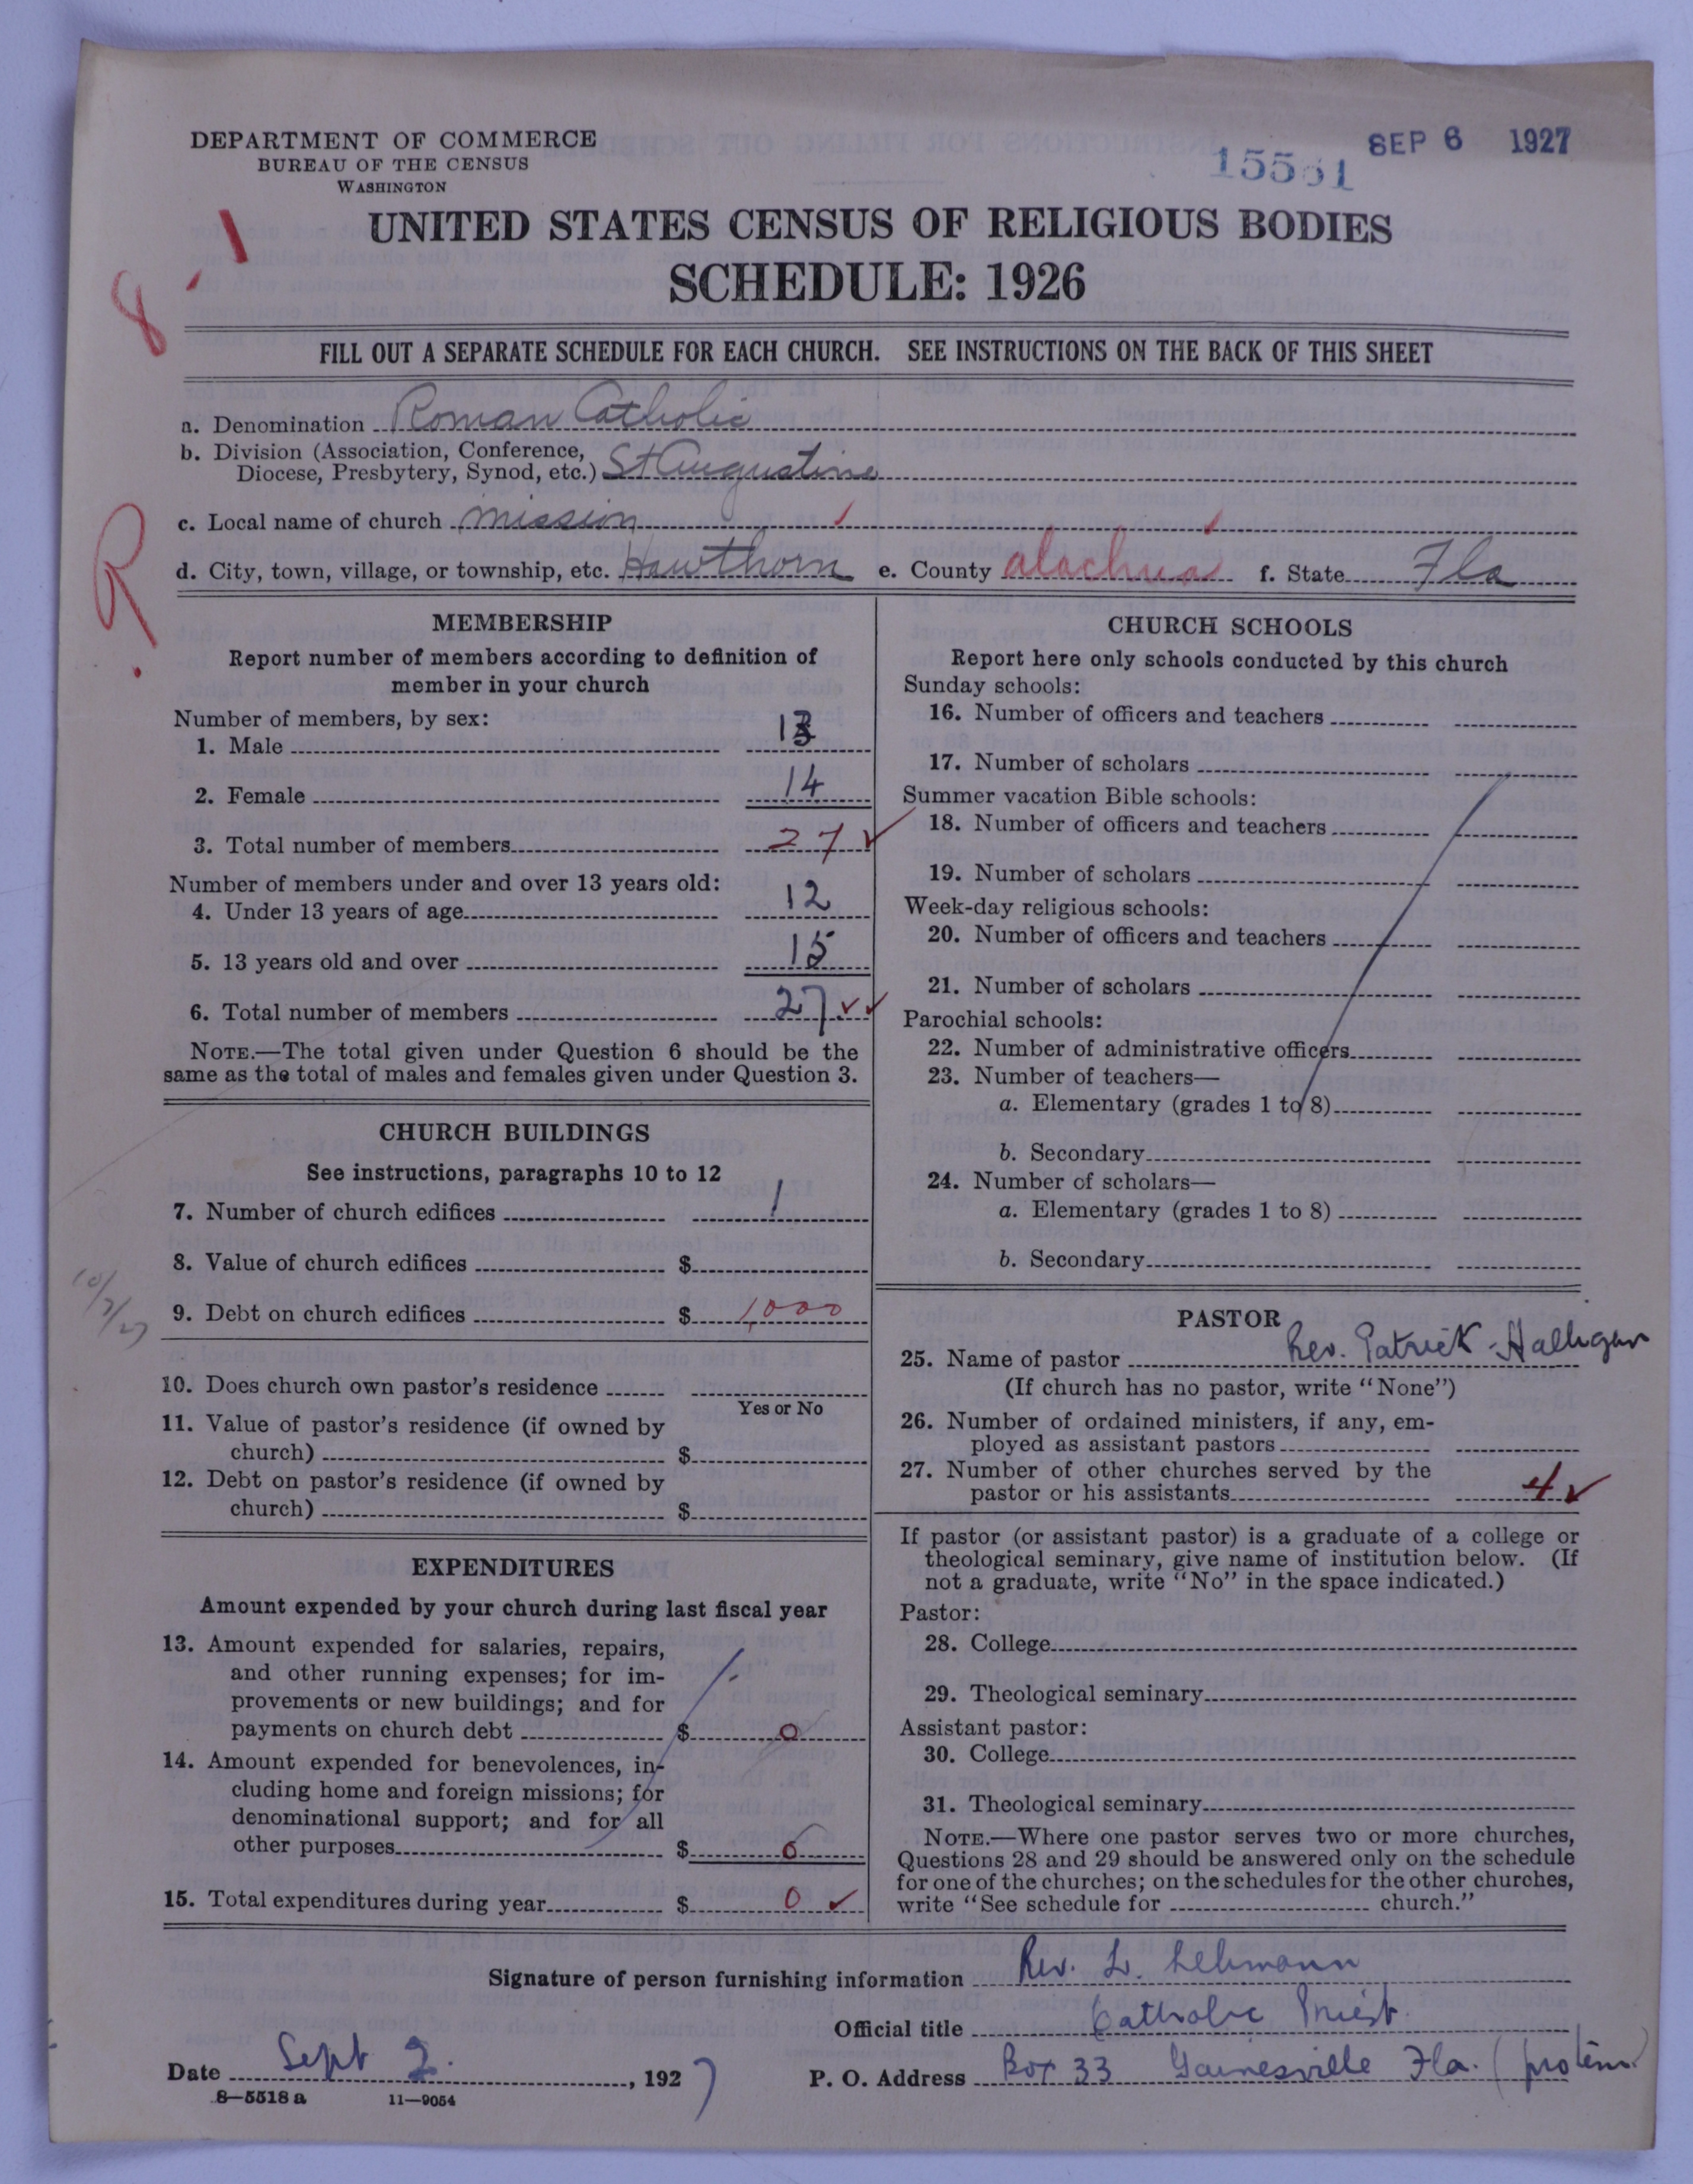 DEPARTMENT OF COMMERCE
BUREAU OF THE CENSUS
WASHINGTON
SEP 6 1927
15561
UNITED STATES CENSUS OF RELIGIOUS BODIES
SCHEDULE: 1926
8
FILL OUT A SEPARATE SCHEDULE FOR EACH CHURCH. SEE INSTRUCTIONS ON THE BACK OF THIS SHEET
a. Denomination Roman Catholic
b. Division (Association, Conference,
Diocese, Presbytery, Synod, etc.) St Augustine
c. Local name of church mission
d. City, town, village, or township, etc. Hawthorn e. County alachua f. State Fla
R
MEMBERSHIP
Report number of members according to definition of
member in your church
Number of members, by sex:
1. Male 13
2. Female 14
3. Total number of members 27 ✓
Number of members under and over 13 years old:
4. Under 13 years of age 12
5. 13 years old and over 15
6. Total number of members 27 ✓✓
NOTE.—The total given under Question 6 should be the
same as the total of males and females given under Question 3.
CHURCH BUILDINGS
See instructions, paragraphs 10 to 12
7. Number of church edifices 1
8. Value of church edifices $
9. Debt on church edifices $ 1,000
10/7/27
10. Does church own pastor's residence
Yes or No
11. Value of pastor's residence (if owned by
church) $
12. Debt on pastor's residence (if owned by
church) $
EXPENDITURES
Amount expended by your church during last fiscal year
13. Amount expended for salaries, repairs,
and other running expenses; for im-
provements or new buildings; and for
payments on church debt $ 0
14. Amount expended for benevolences, in-
cluding home and foreign missions; for
denominational support; and for all
other purposes $ 0
15. Total expenditures during year $ 0 ✓
CHURCH SCHOOLS
Report here only schools conducted by this church
Sunday schools:
16. Number of officers and teachers
17. Number of scholars
Summer vacation Bible schools:
18. Number of officers and teachers
19. Number of scholars
Week-day religious schools:
20. Number of officers and teachers
21. Number of scholars
Parochial schools:
22. Number of administrative officers
23. Number of teachers—
a. Elementary (grades 1 to 8)
b. Secondary
24. Number of scholars—
a. Elementary (grades 1 to 8)
b. Secondary
PASTOR
25. Name of pastor Rev. Patrick Halligan
(If church has no pastor, write "None")
26. Number of ordained ministers, if any, em-
ployed as assistant pastors
27. Number of other churches served by the
pastor or his assistants 4 ✓
If pastor (or assistant pastor) is a graduate of a college or
theological seminary, give name of institution below. (If
not a graduate, write "No" in the space indicated.)
Pastor:
28. College
29. Theological seminary
Assistant pastor:
30. College
31. Theological seminary
NOTE.—Where one pastor serves two or more churches,
Questions 28 and 29 should be answered only on the schedule
for one of the churches; on the schedules for the other churches,
write "See schedule for church."
Signature of person furnishing information Rev. L. Lehmann
Official title Catholic Priest.
Date Sept 2. , 1927 P. O. Address Box 33 Gainesville Fla. (protem)
8—5518 a 11—9054